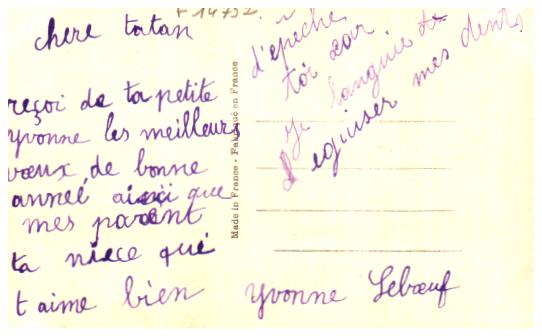 F 14732.
chere tatan
reçoi de ta petite
yvonne les meilleurs
vœux de bonne
anneé ainsi que
mes parent
ta niece qué
t aime bien
yvonne Lebœuf
d'epêche
toi car
Je languie de
d'eguiser mes dents
Made in France - Fabriqué en France